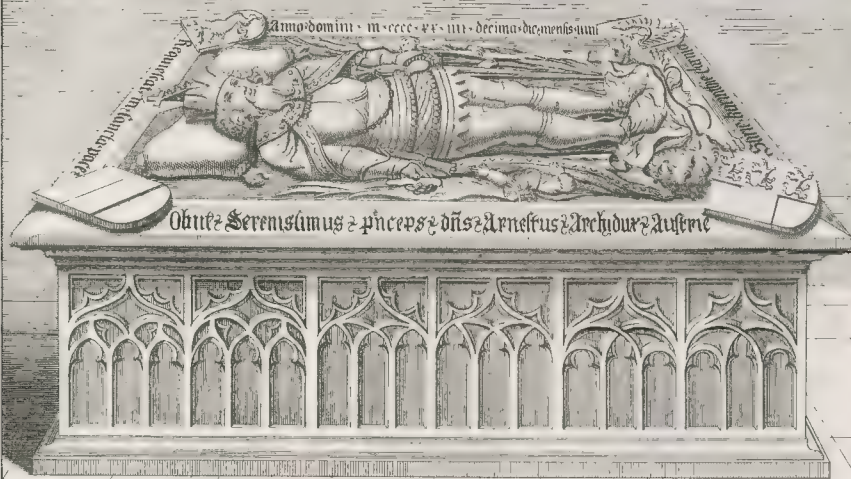 Anno·domini·m·cccc·xx·iiii·decima·die·mensis·iunii
Obiit Serenissimus princeps dñs Arnestus Archidux Austrie
Stirie Karinthie
Requiescat in sancta pace